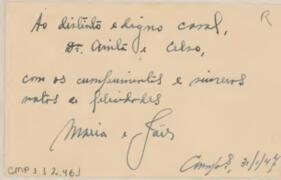 R
Ao distinto e digno casal,
Dr. Anita e Celso,
com os cumprimentos e sinceros
votos de felicidades
Maria e Jair
Campos, 31/1/47
CMP.1.1.2.461